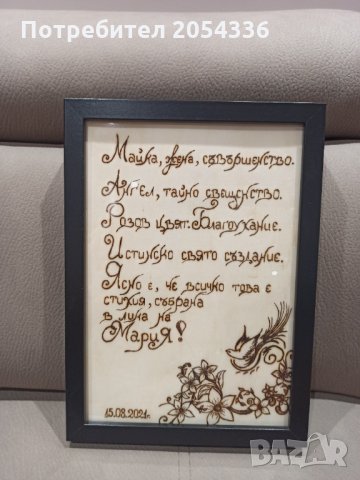 Потребител 2054336
Майка, жена, съвършенство.
Ангел, тайно свещенство.
Розов цвят. Благоухание.
Истинско свято създание.
Ясно е, че всичко това е
стихия, събрана
в лика на
Мария!
15.08.2021г.
BAZAR